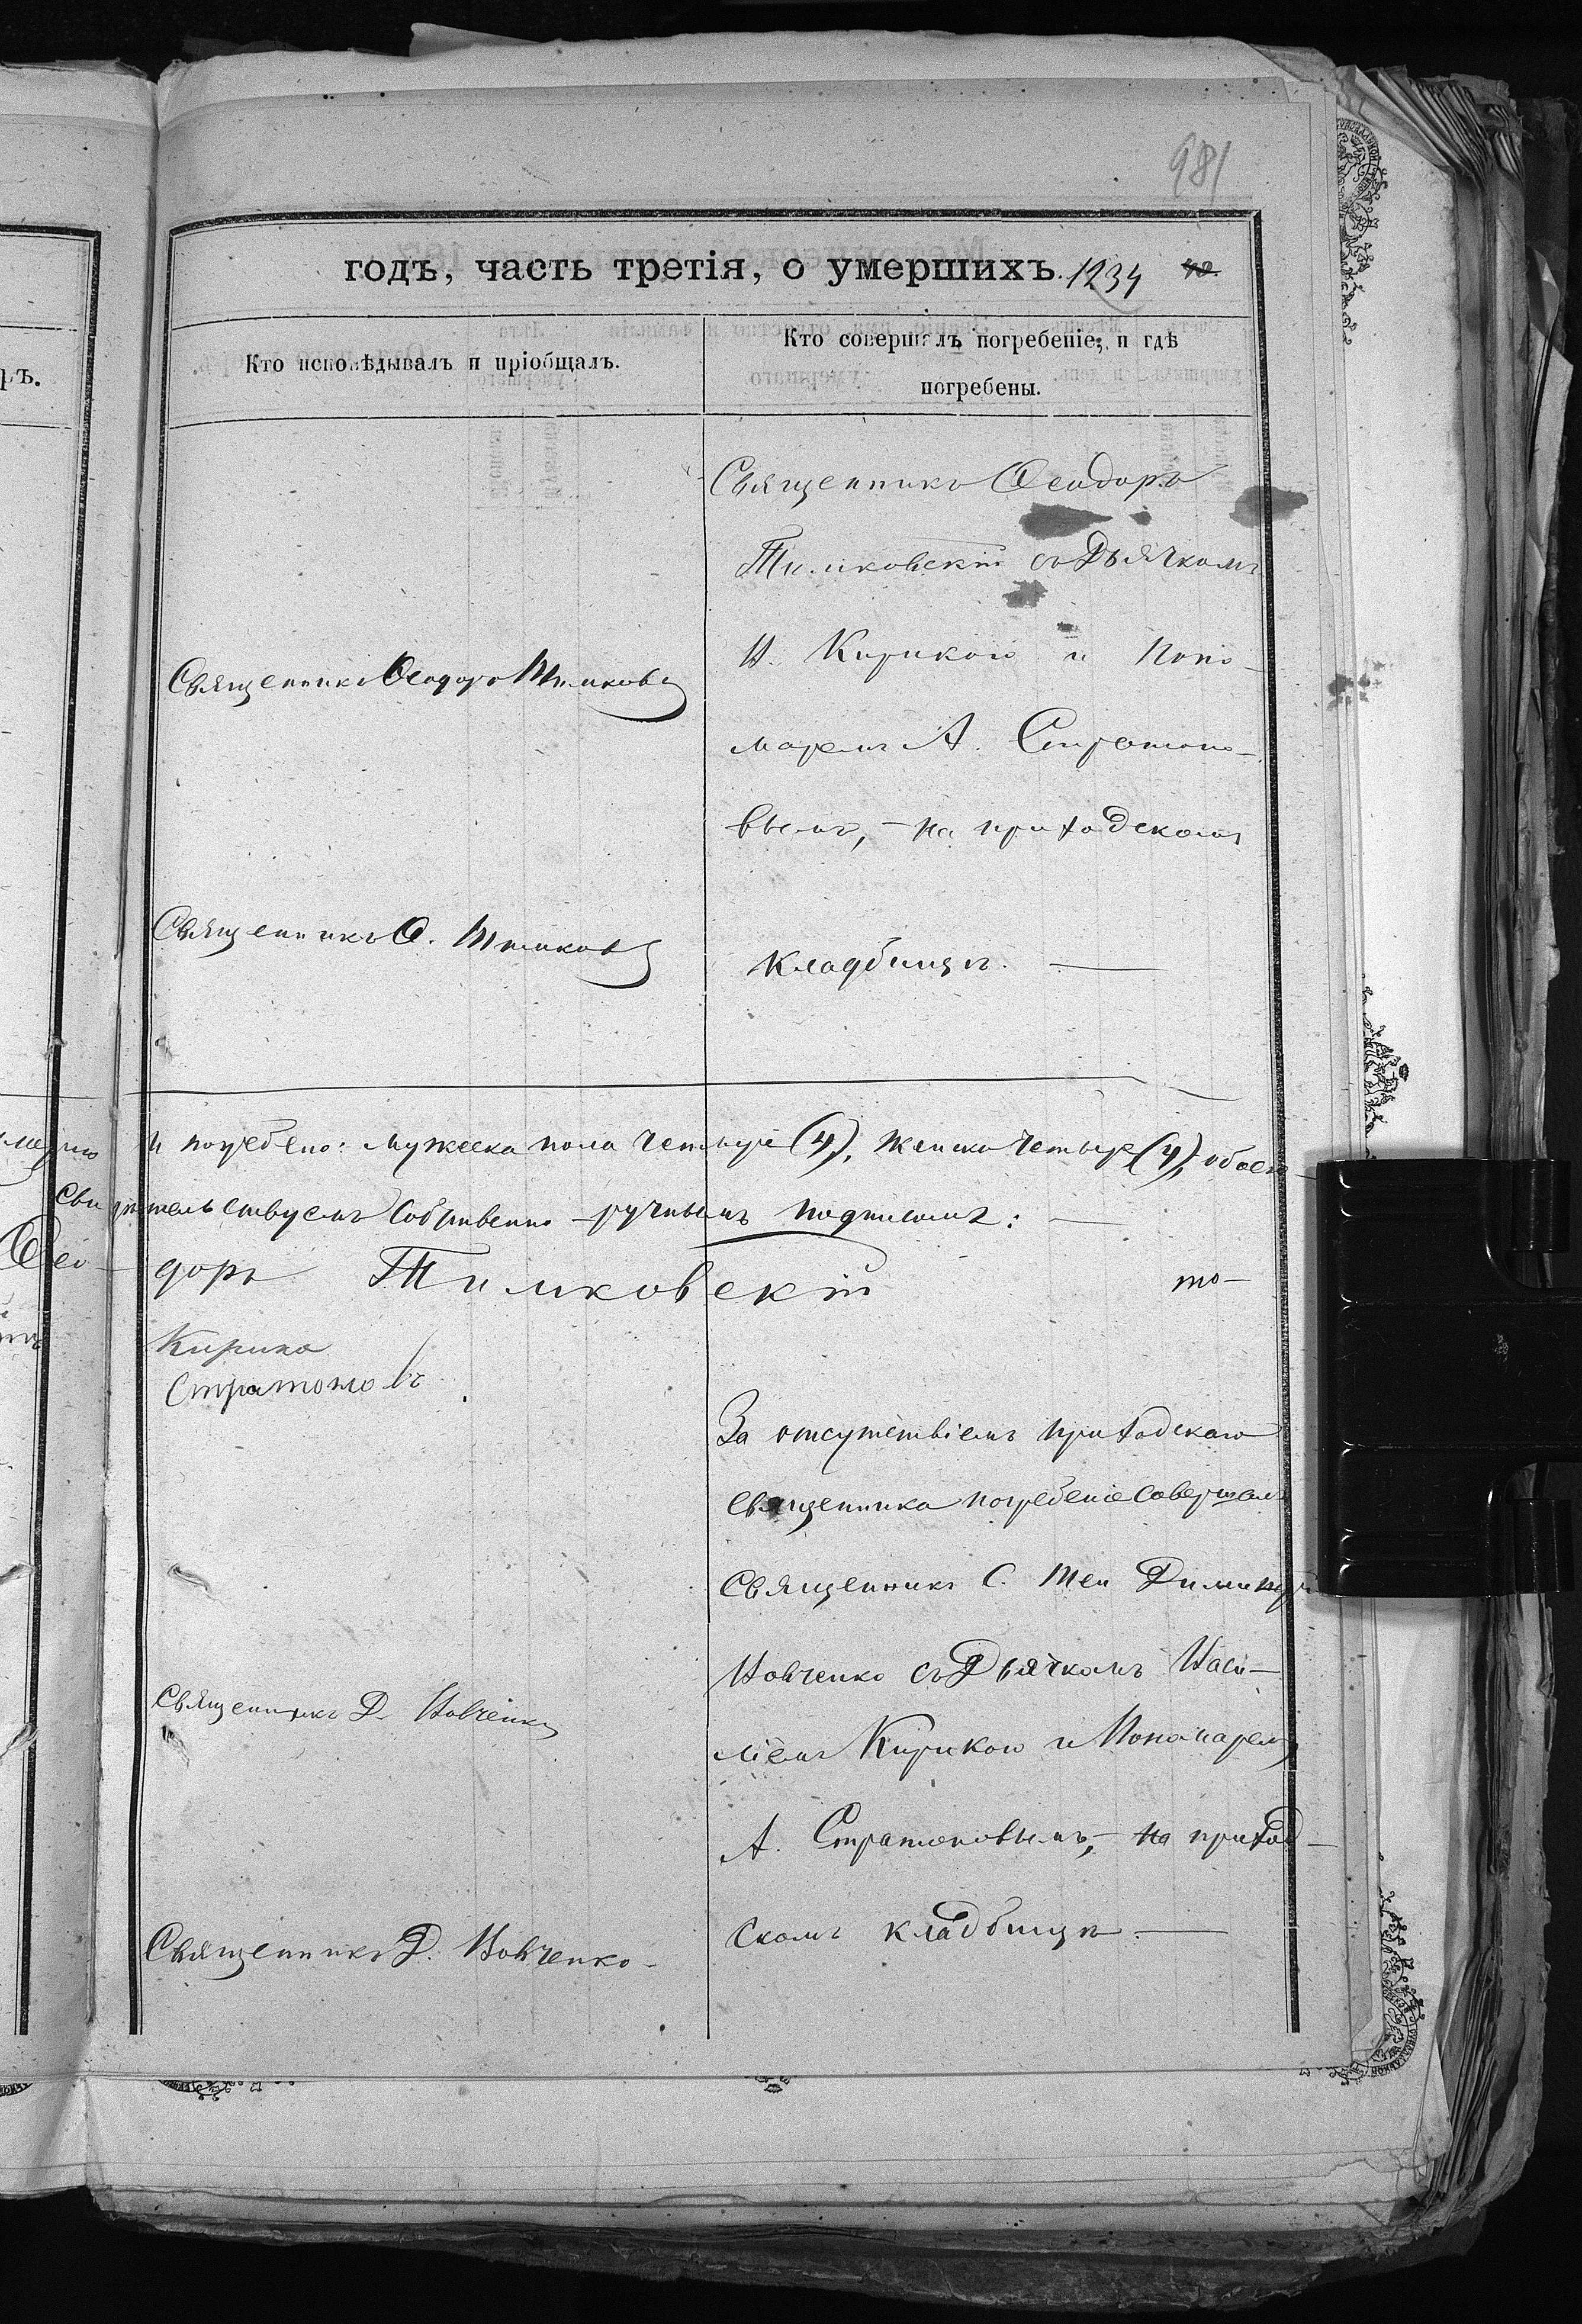 981
годъ, часть третія, о умершихъ. 1234
ръ.
Кто исповѣдывалъ и пріобщалъ.
Кто совершалъ погребеніе, и гдѣ
погребены.
Священникъ Ѳеодоръ
Тимковскій съ Дьячкомъ
И. Кирикою и Поно-
маремъ А. Стратоно-
вымъ, - на приходскомъ
кладбищѣ. —
Священникъ Ѳеодоръ Тимковс
Священникъ Ѳ. Тимков
и погребено: мужеска пола четыре (4), женска четыре (4), обоего
свидѣтельствуемъ собственно-ручнымъ подписомъ: —
Ѳео-доръ Тимковскій то-
Кирика
Стратоновъ.
За отсутствіемъ приходскаго
священника погребеніе совершалъ
Священникъ С. Теи Димитрій
Ивченко съ Дьячкомъ Васи-
ліемъ Кирикою и Пономаремъ
А. Стратоновымъ, - на приход-
скомъ кладбищѣ. —
Священникъ Д. Ивченко
Священникъ Д. Ивченко.